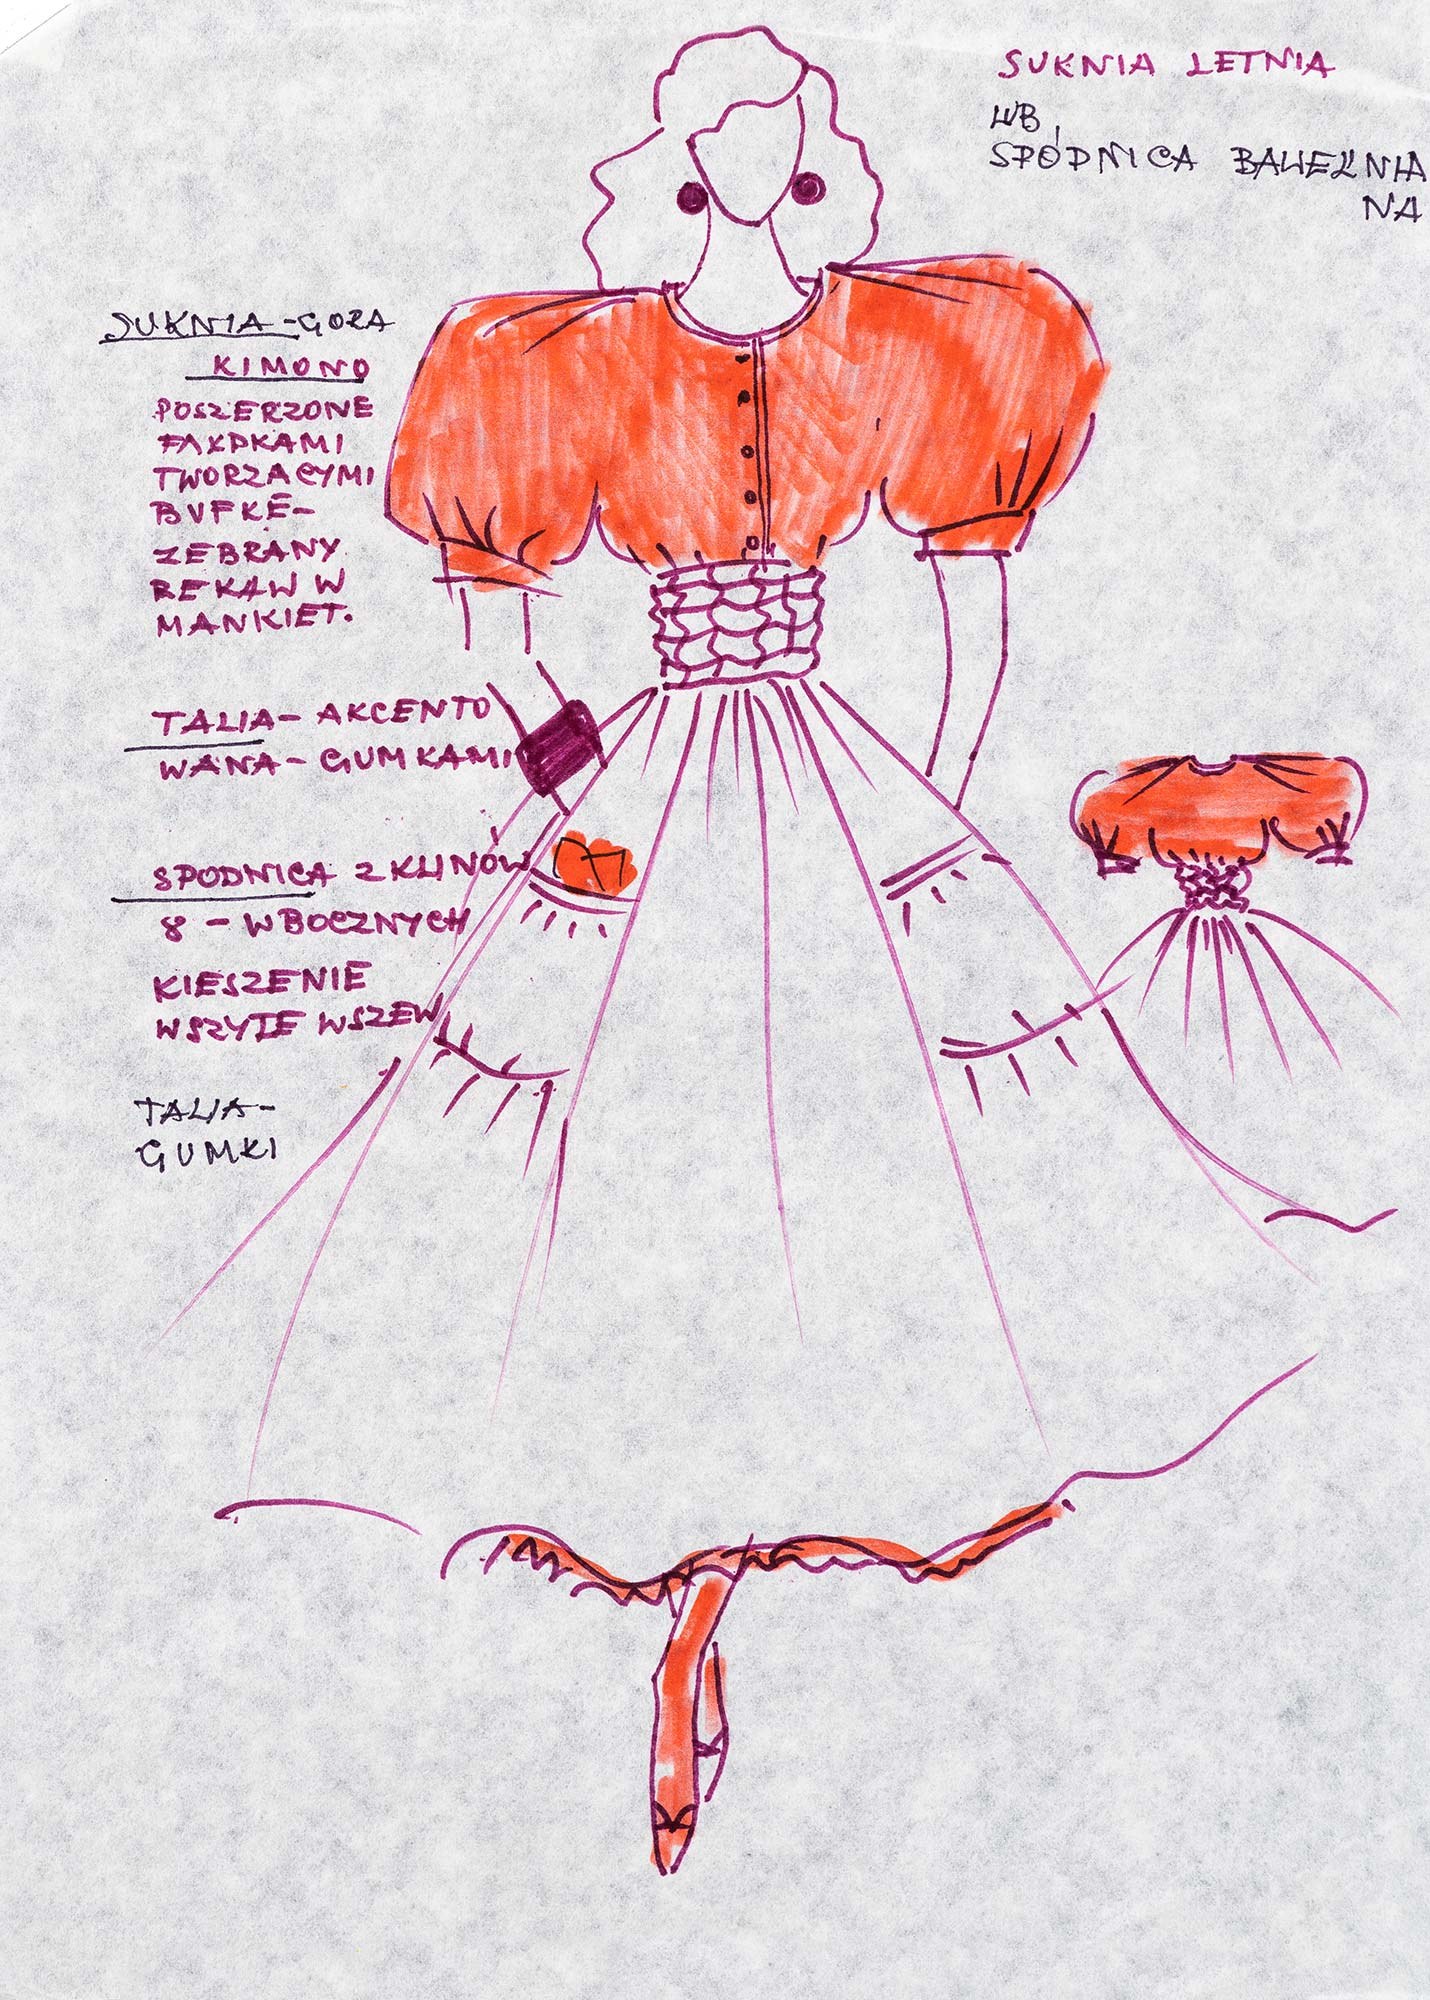 SUKNIA LETNIA
WB
SPÓDNICA BAWEŁNIA
NA
SUKNIA - GORA
KIMONO
POSZERZONE
FAŁDKAMI
TWORZACYMI
BUFKĘ -
ZEBRANY
REKAW W
MANKIET.
TALIA - AKCENTO
WANA - GUMKAMI
SPODNICA Z KLINÓW
8 - W BOCZNYCH
KIESZENIE
WSZYTE WSZEW
TALIA -
GUMKI